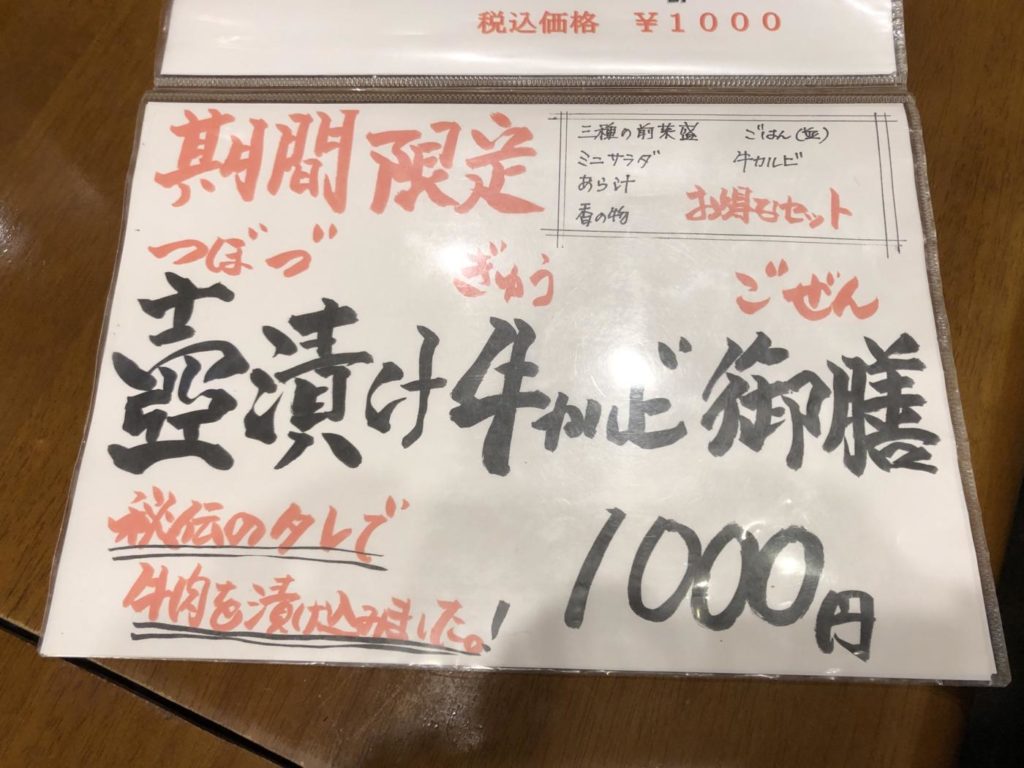 税込価格 ￥1000
期間限定
三種の前菜盛 ごはん(並)
ミニサラダ 牛カルビ
あら汁
香の物 お得なセット
つぼづ ぎゅう ごぜん
壺漬け牛カルビ御膳
秘伝のタレで
牛肉を漬け込みました。!
1000円